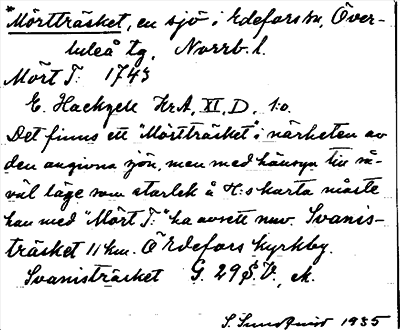 *Mörtträsket, en sjö i Edefors sn, Över-
luleå tg, Norrb. l.
Mört T. 1743
E. Hackzell KrA, XI, D, 1:o.
Det finns ett "Mörtträsket" i närheten av
den angivna sjön, men med hänsyn till så-
väl läge som storlek å H:s karta måste
han med "Mört T." ha avsett nuv. Svanis-
träsket 11 km. Ö Edefors kyrkby.
Svanisträsket G. 29 S.V., ek.
S. Sundqvist 1935